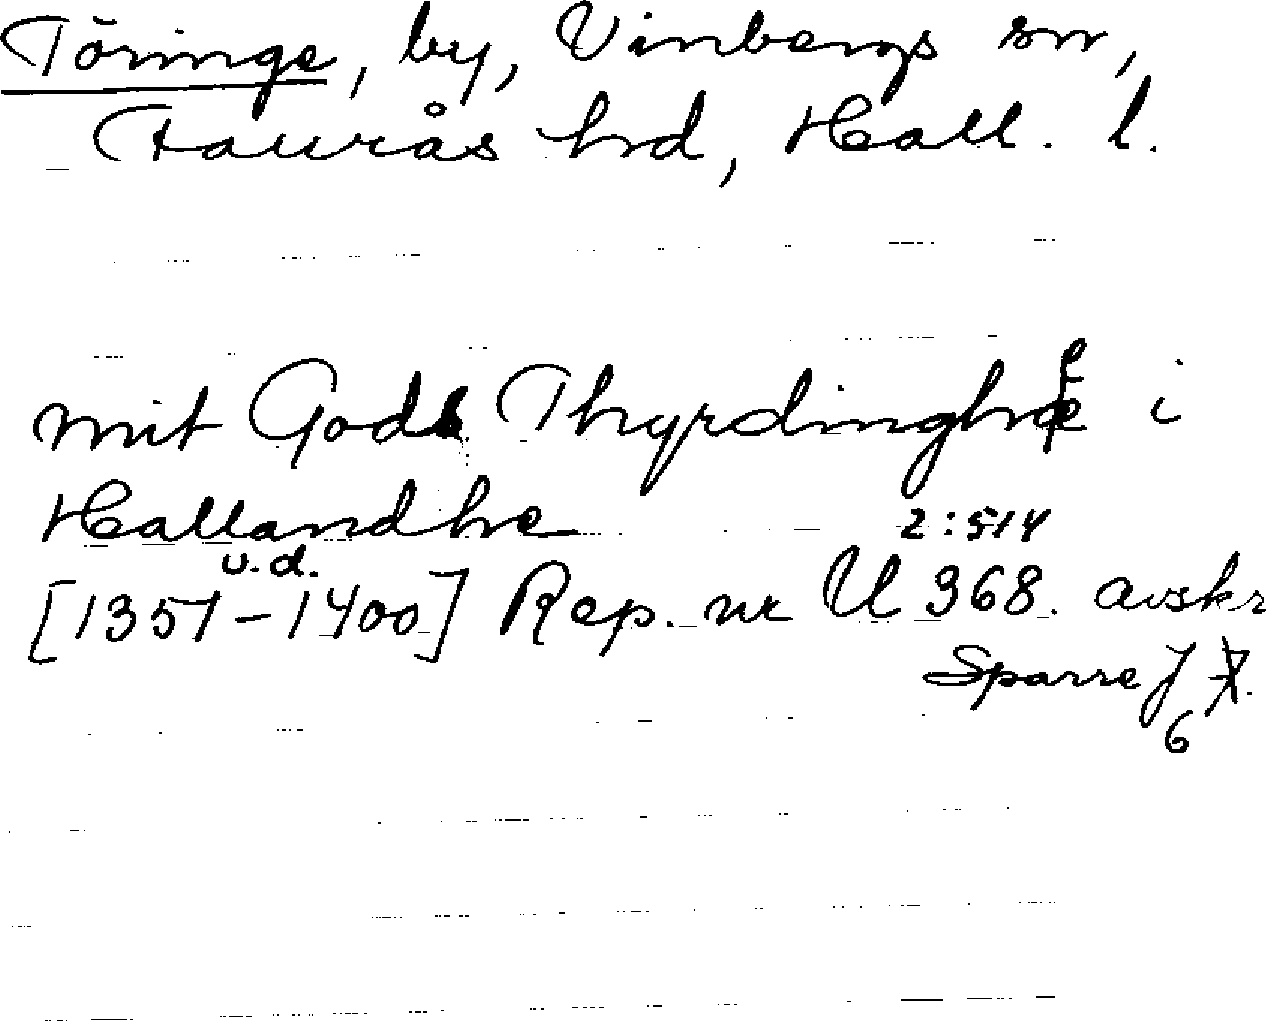 Töringe, by, Vinbergs sn,
Faurås hrd, Hall. l.
mit Gods Thyrdinghe i
Hallandhe 2:514
u.d.
[1351-1400] Rep. nr U 368. avskr
Sparre J 7.
6